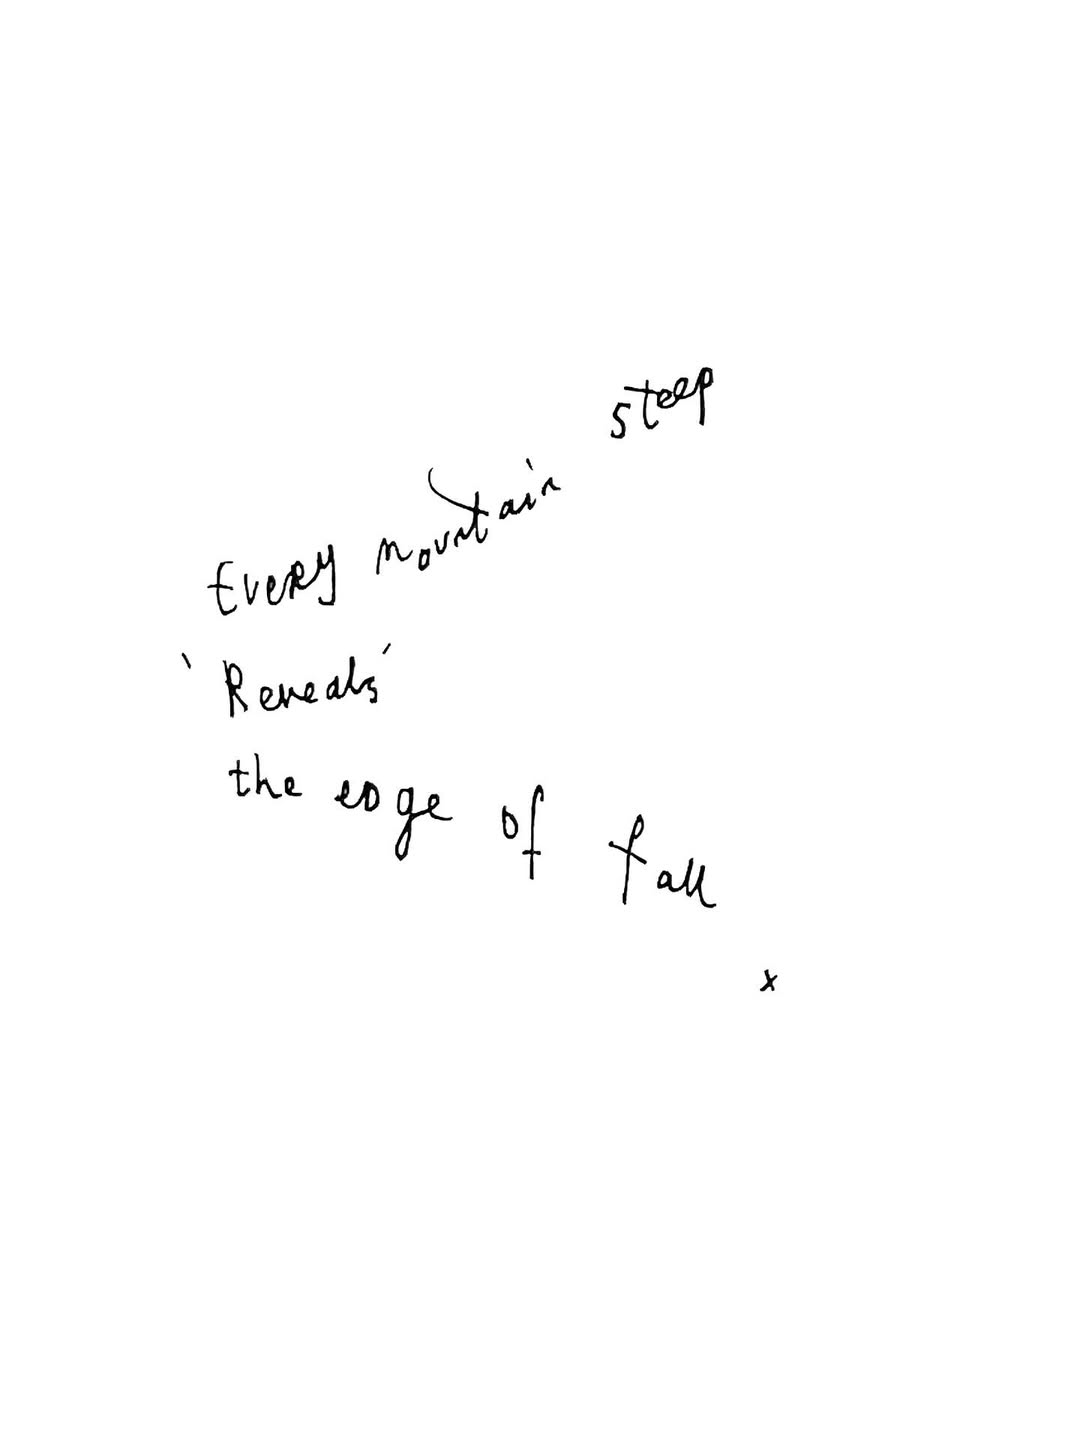 Every mountain steep
'Reveals'
the edge of fall
x